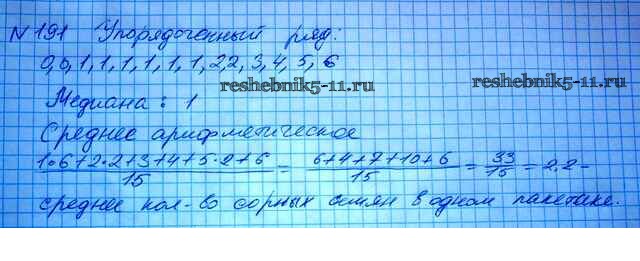 №191 Упорядоченный ряд:
0,0,1,1,1,1,1,1,2,2,3,4,5,6
reshebnik5-11.ru reshebnik5-11.ru
Медиана: 1
Среднее арифметическое
1•6+2•2+3+4+5•2+6/15 = 6+4+7+10+6/15 = 33/15 = 2,2-
среднее кол-во сорных семян в одном пакетике.